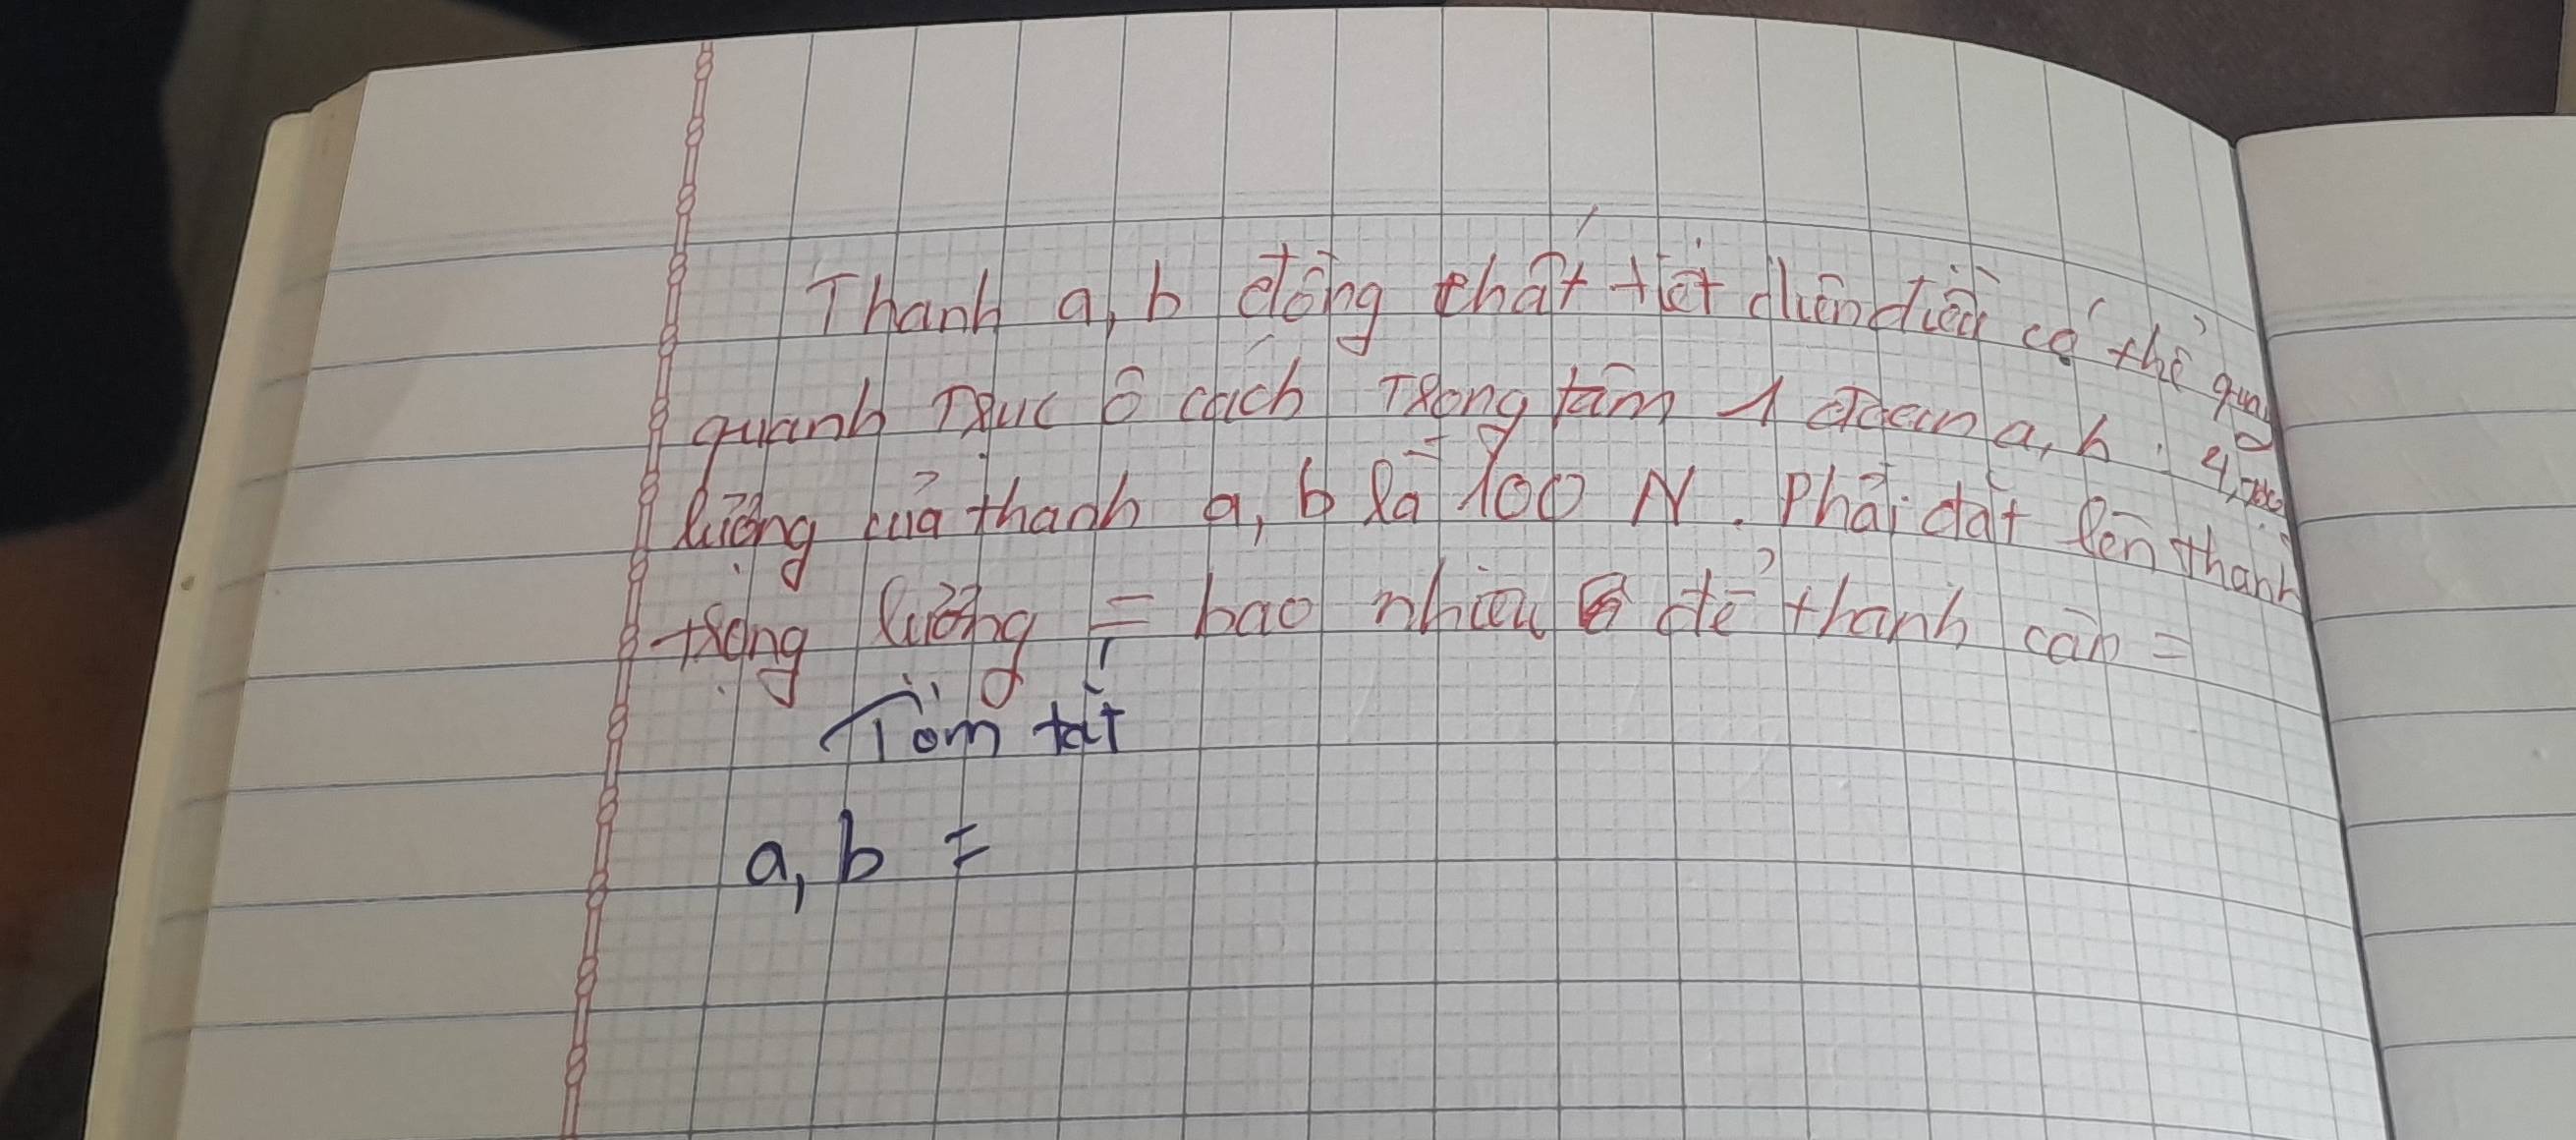 Thanh a, b đồng chất tiết diện điều có thể quay
quanh trục ô cách trọng tâm 1 đoạn a, b :
lượng của thanh a, b là 100 N. Phải đặt lên thanh
trọng lượng = bao nhiêu để thanh cần =
Tóm tắt
a, b =